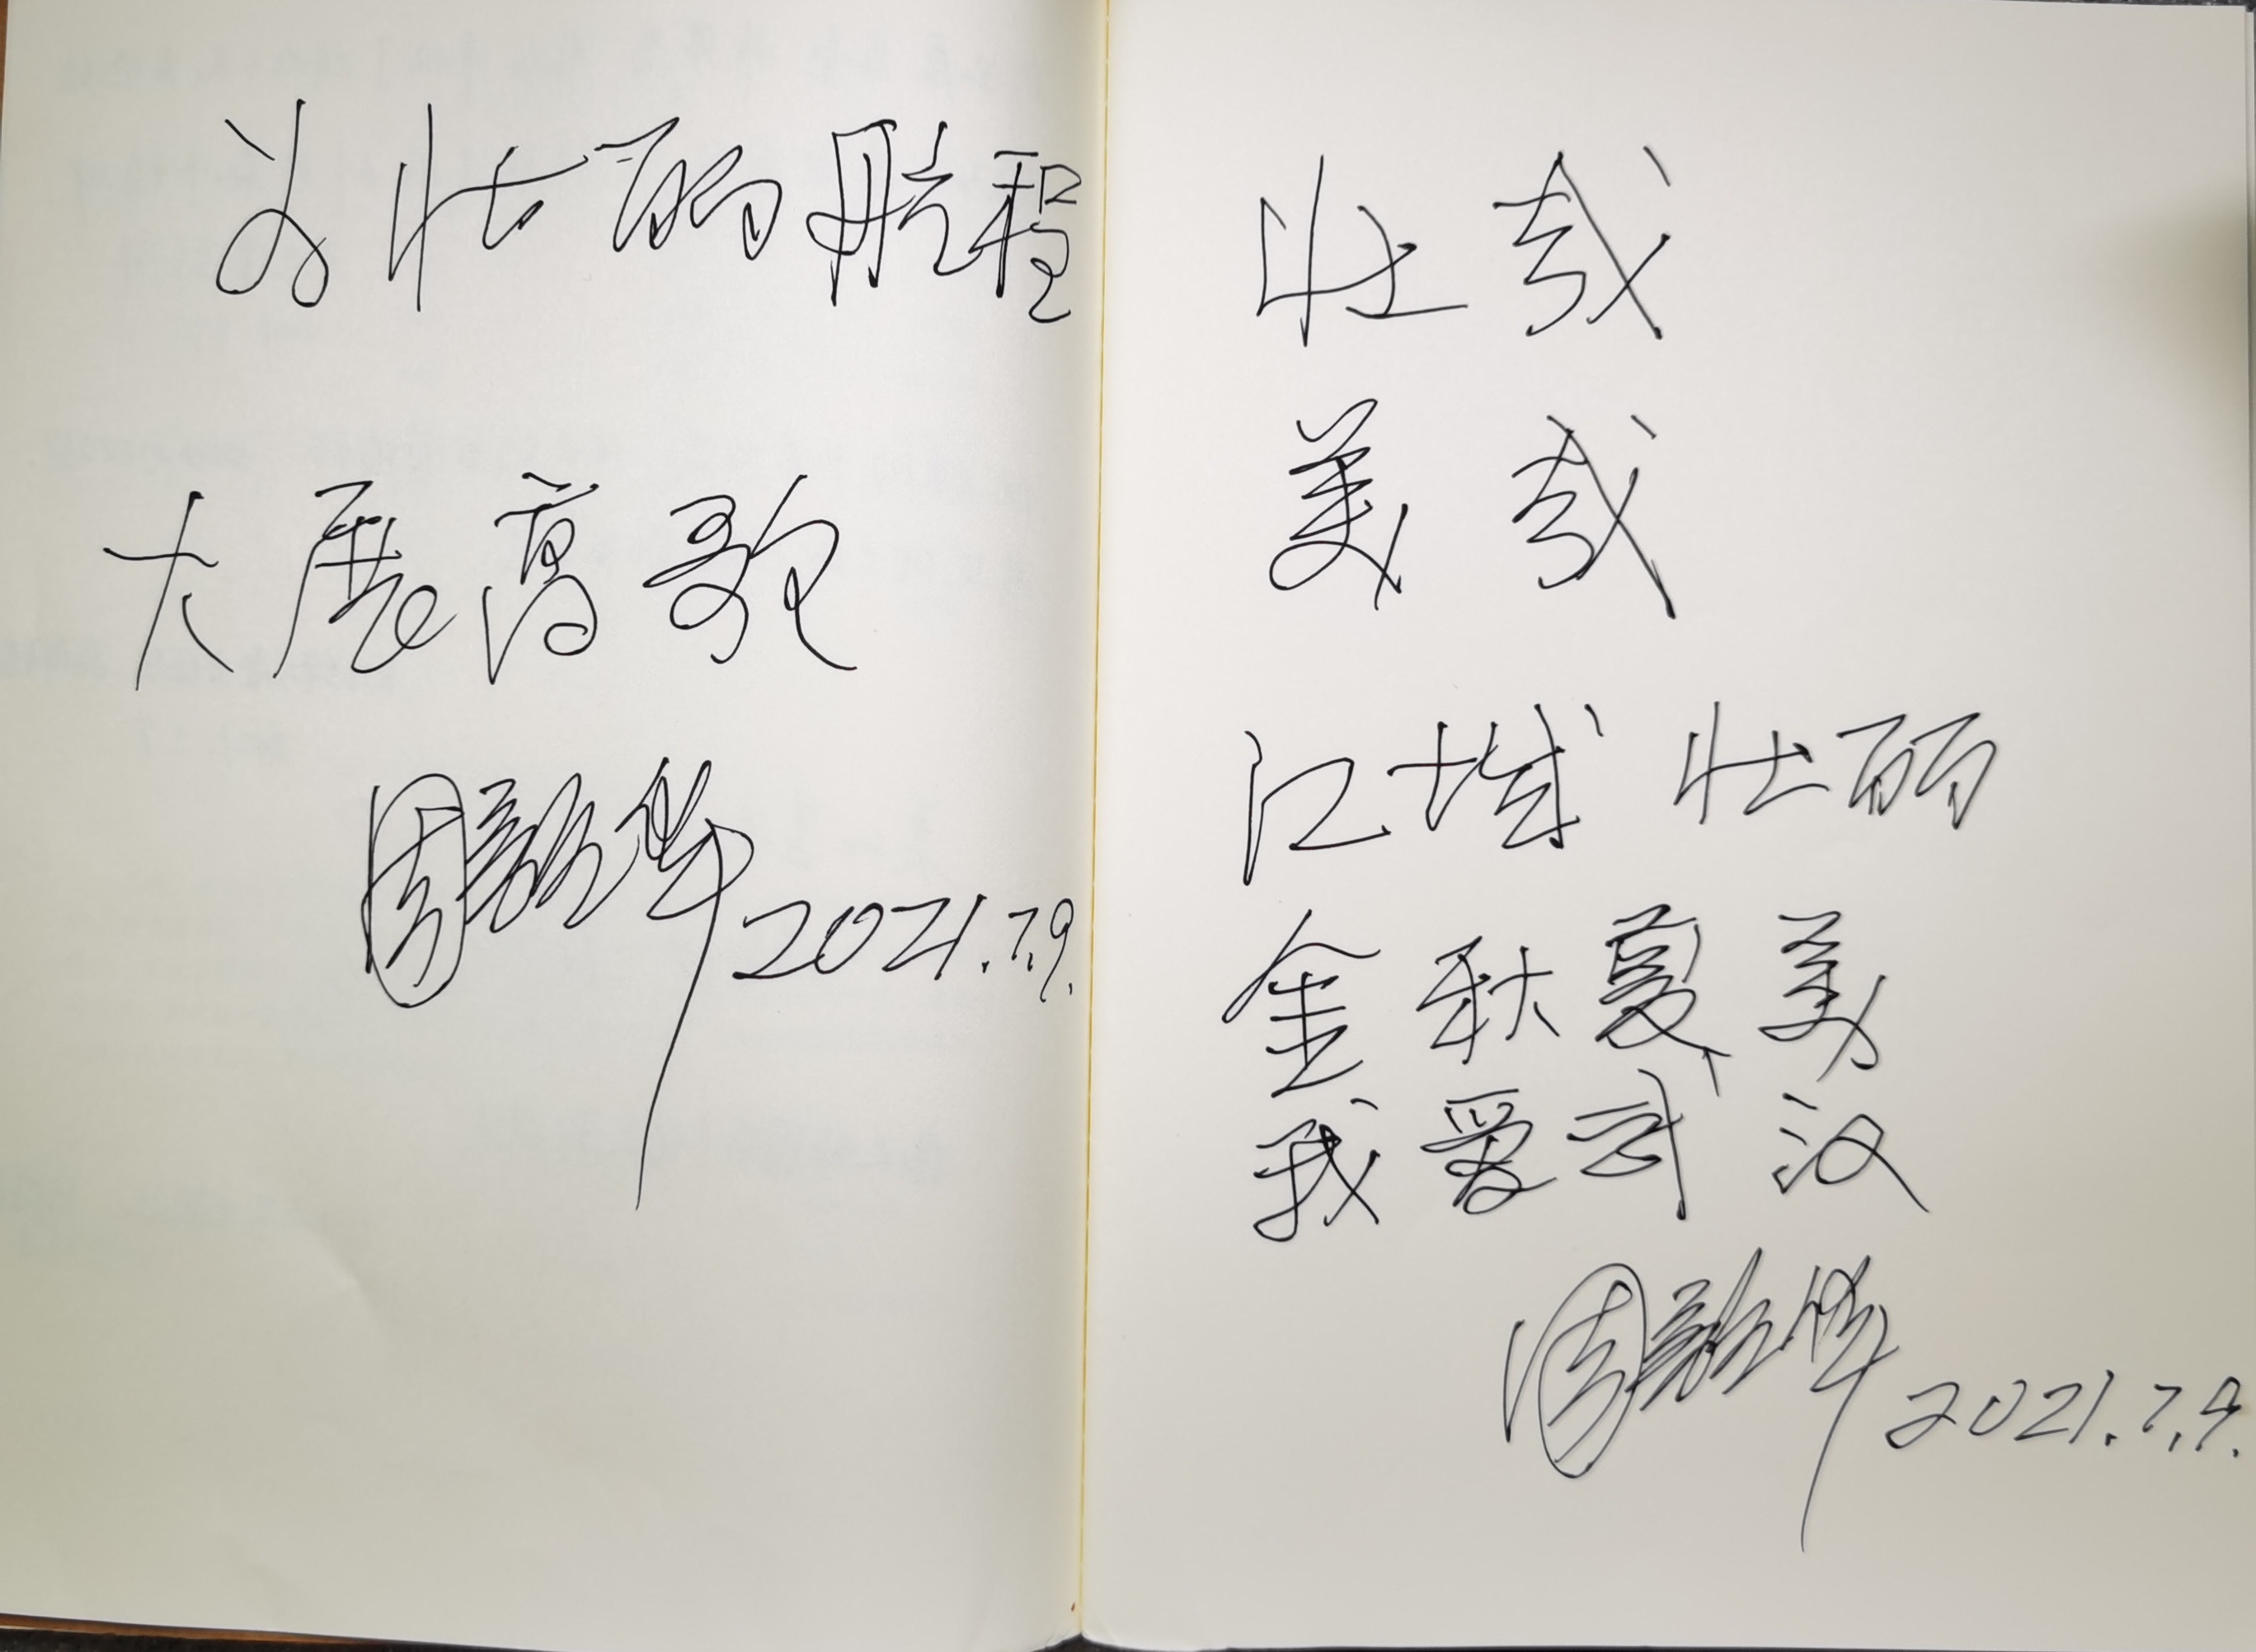 为壮丽航程
大展高歌
周韶华 2021.7.9.
壮哉
美哉
江城壮丽
金秋夏美
我爱武汉
周韶华 2021.7.9.